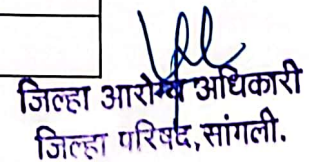 जिल्हा आरोग्य अधिकारी
जिल्हा परिषद,सांगली.